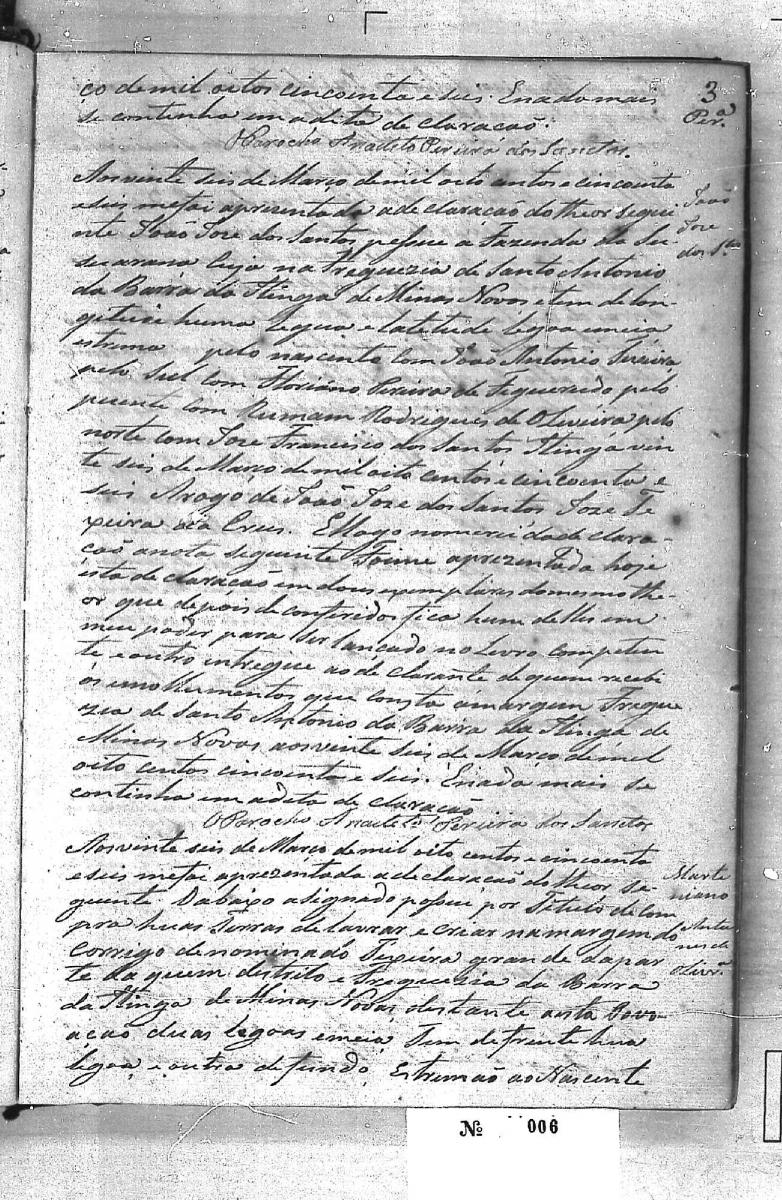 3
Per.ª
ço de mil oitos cincoenta e seis. Enada mais
se continha em a dita declaracaõ.
O Parocho Anacleto Pereira dos Sanctos.
João
Joze
dos S.tos
Aos vinte seis de Março de mil oito centos e cincoenta
e seis me foi aprezentada a declaracaõ do theor segui
nte João Joze dos Santos possue a Fazenda da Su
suarana Cija na Freguezia de Santo Antonio
da Barra da Itinga de Minas Novas e tem de lon
gitude huma legua e latetude legoa e meia
estrema pelo nascente com João Antonio
pelo Sul com Floriano Pereira de Figueredo pelo
puente com Rodrigues de Oliveira pelo
norte com Joze Francisco dos Santos Itinga vin
te seis de Março de mil oito centos e cincoenta e
seis Arogo de João Joze dos Santos Joze Te
xeira da Crus. E logo nomerei da declara-
caõ a nota seguinte Foi me aprezentada hoje
esta declaração em dous exemplares do mesmo the-
or que depois de conferidos fica hum delles em
meu poder para ser lançado no Livro competen
te e outro intregue ao declarante de quem recebi
os emolhumentos que consta amargem Fregue
zia de Santo Antonio da Barra da Itinga de
Minas Novas aos vinte seis de Março de mil
oito centos cincoenta e seis. Enada mais se
continha em a dita declaração
O Parocho Anacleto Pereira dos Sanctos
Marte
niano
Antu
nes de
Olivr.ª
Aos vinte seis de Março de mil oito centos e cincoenta
e seis me foi aprezentada a declaração do theor se-
guente. Dabaixo asignado possui por Titulo de Com
pra huas Terras de lavrar e crear na margem do
Corrigo denominado Texeira grande da par
te da quem destrito e Freguezia da Barra
da Itinga de Minas Novas destante a esta Povo-
açaõ duas legoas e meia Tem de frente hua
legoa e outra de fundo, Estremaõ ao Nascente
Nº 006